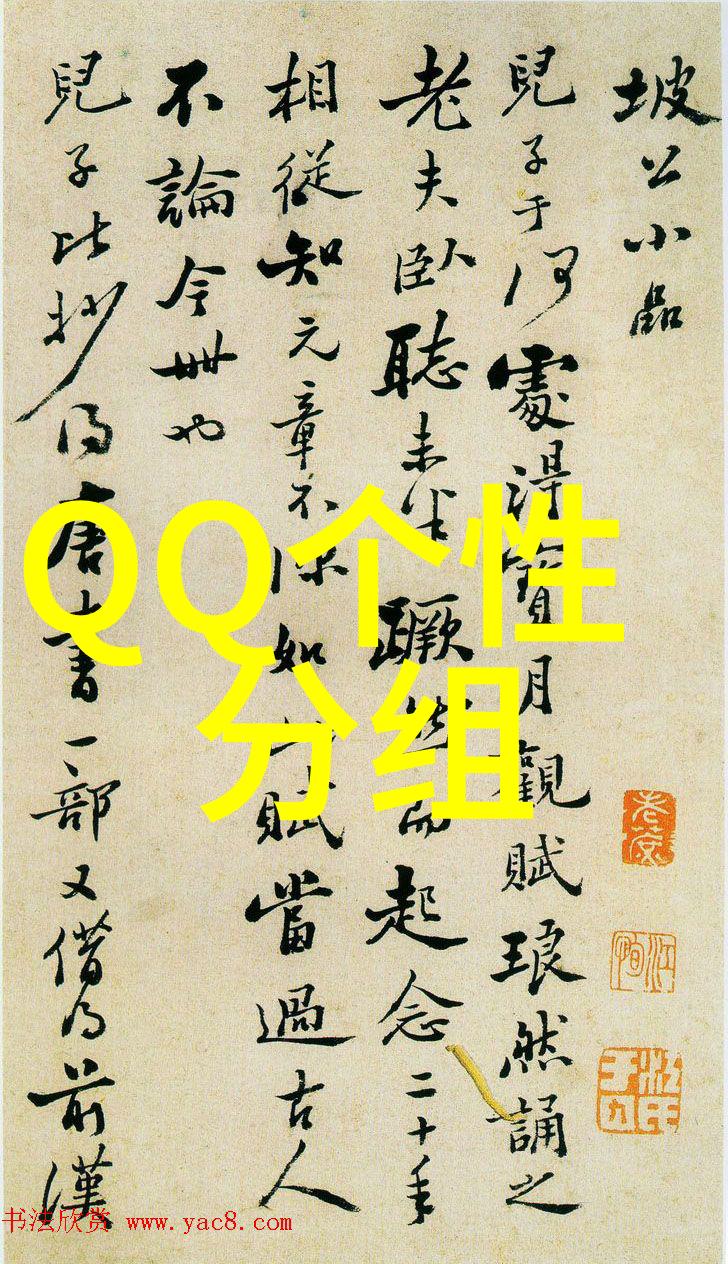 坡公小品
兒子于何處得寶月觀賦琅然誦之
老夫臥聽未半蹶然而起念二十年
相從知元章不深如此賦當過古人
不論今世也
兒子比抄得唐書一部又借得前漢
QQ个性
分组
书法欣赏 www.yac8.com